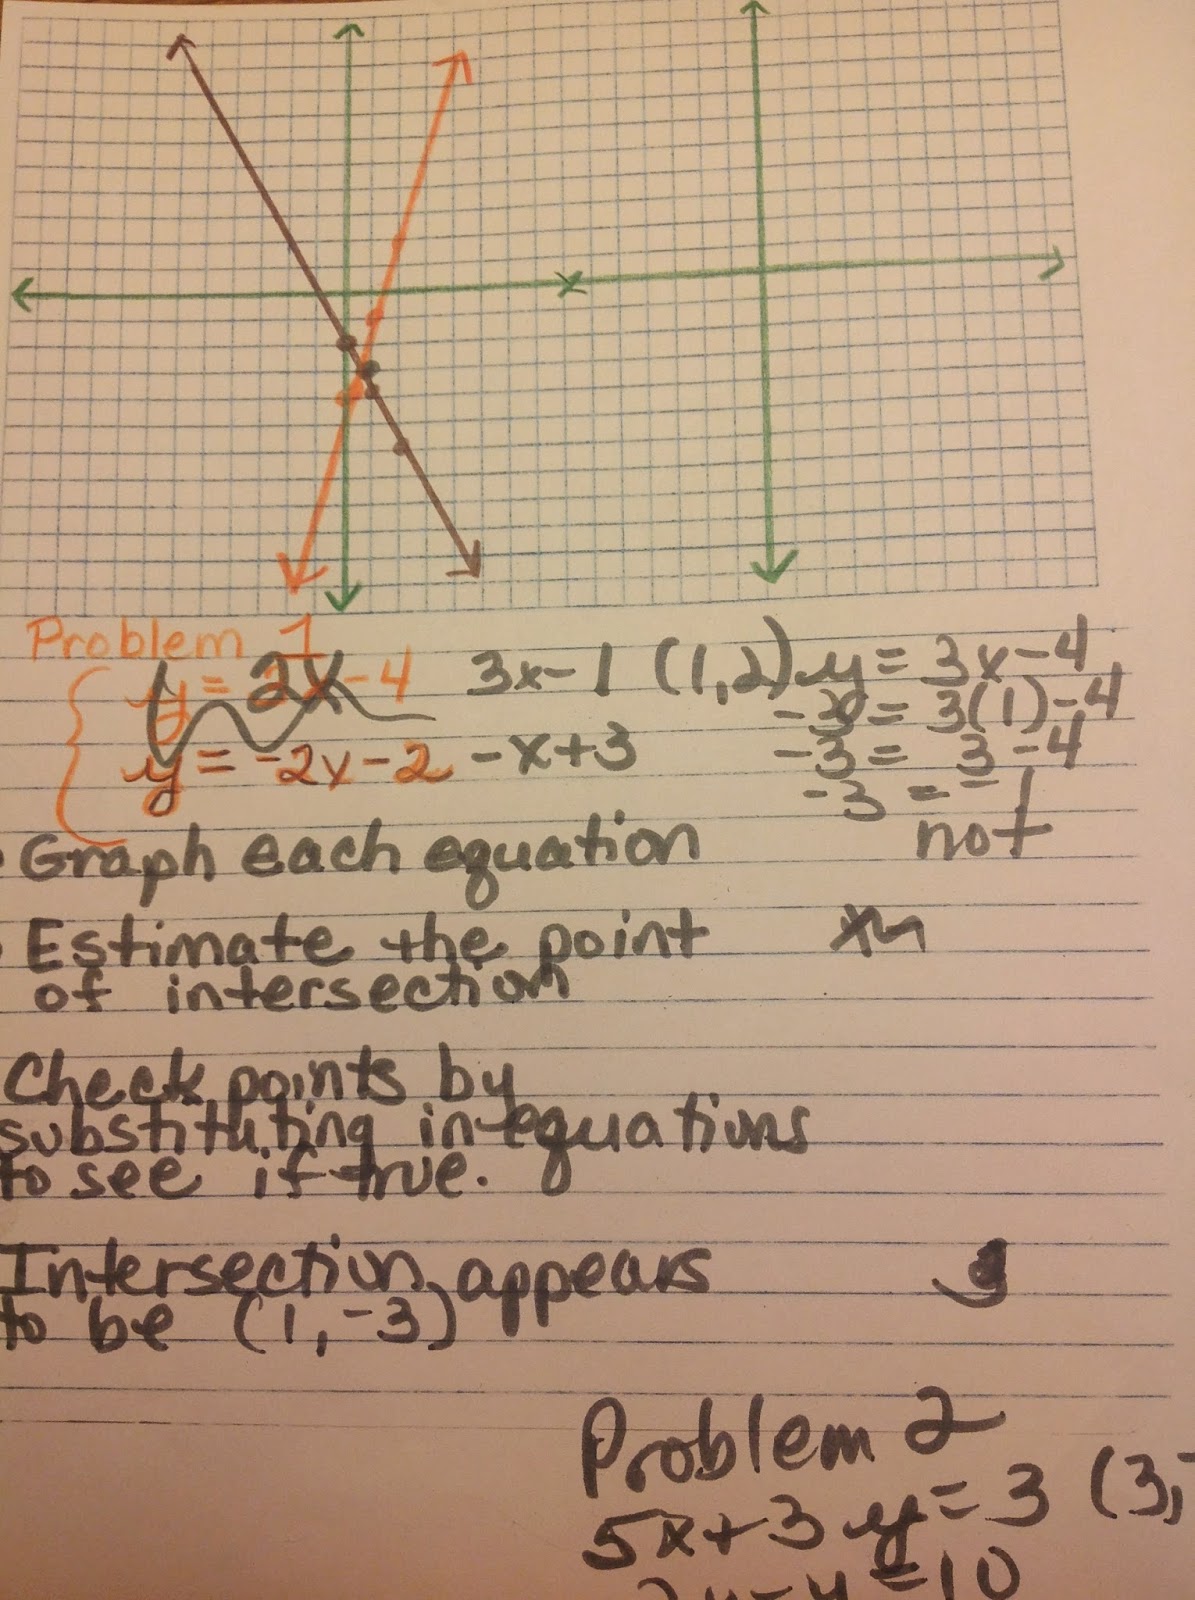 Problem 1
y = 2x - 4 3x - 1 (1,2) y = 3x - 4
y = -2x - 2 - x + 3
- 3 = 3(1) - 4
- 3 = 3 - 4
- 3 = - 1
not
Graph each equation
Estimate the point
of intersection
Check points by
substituting in equations
to see if true.
Intersection appears
to be (1, -3)
Problem 2
5x + 3y = 3 (3,
y = 10